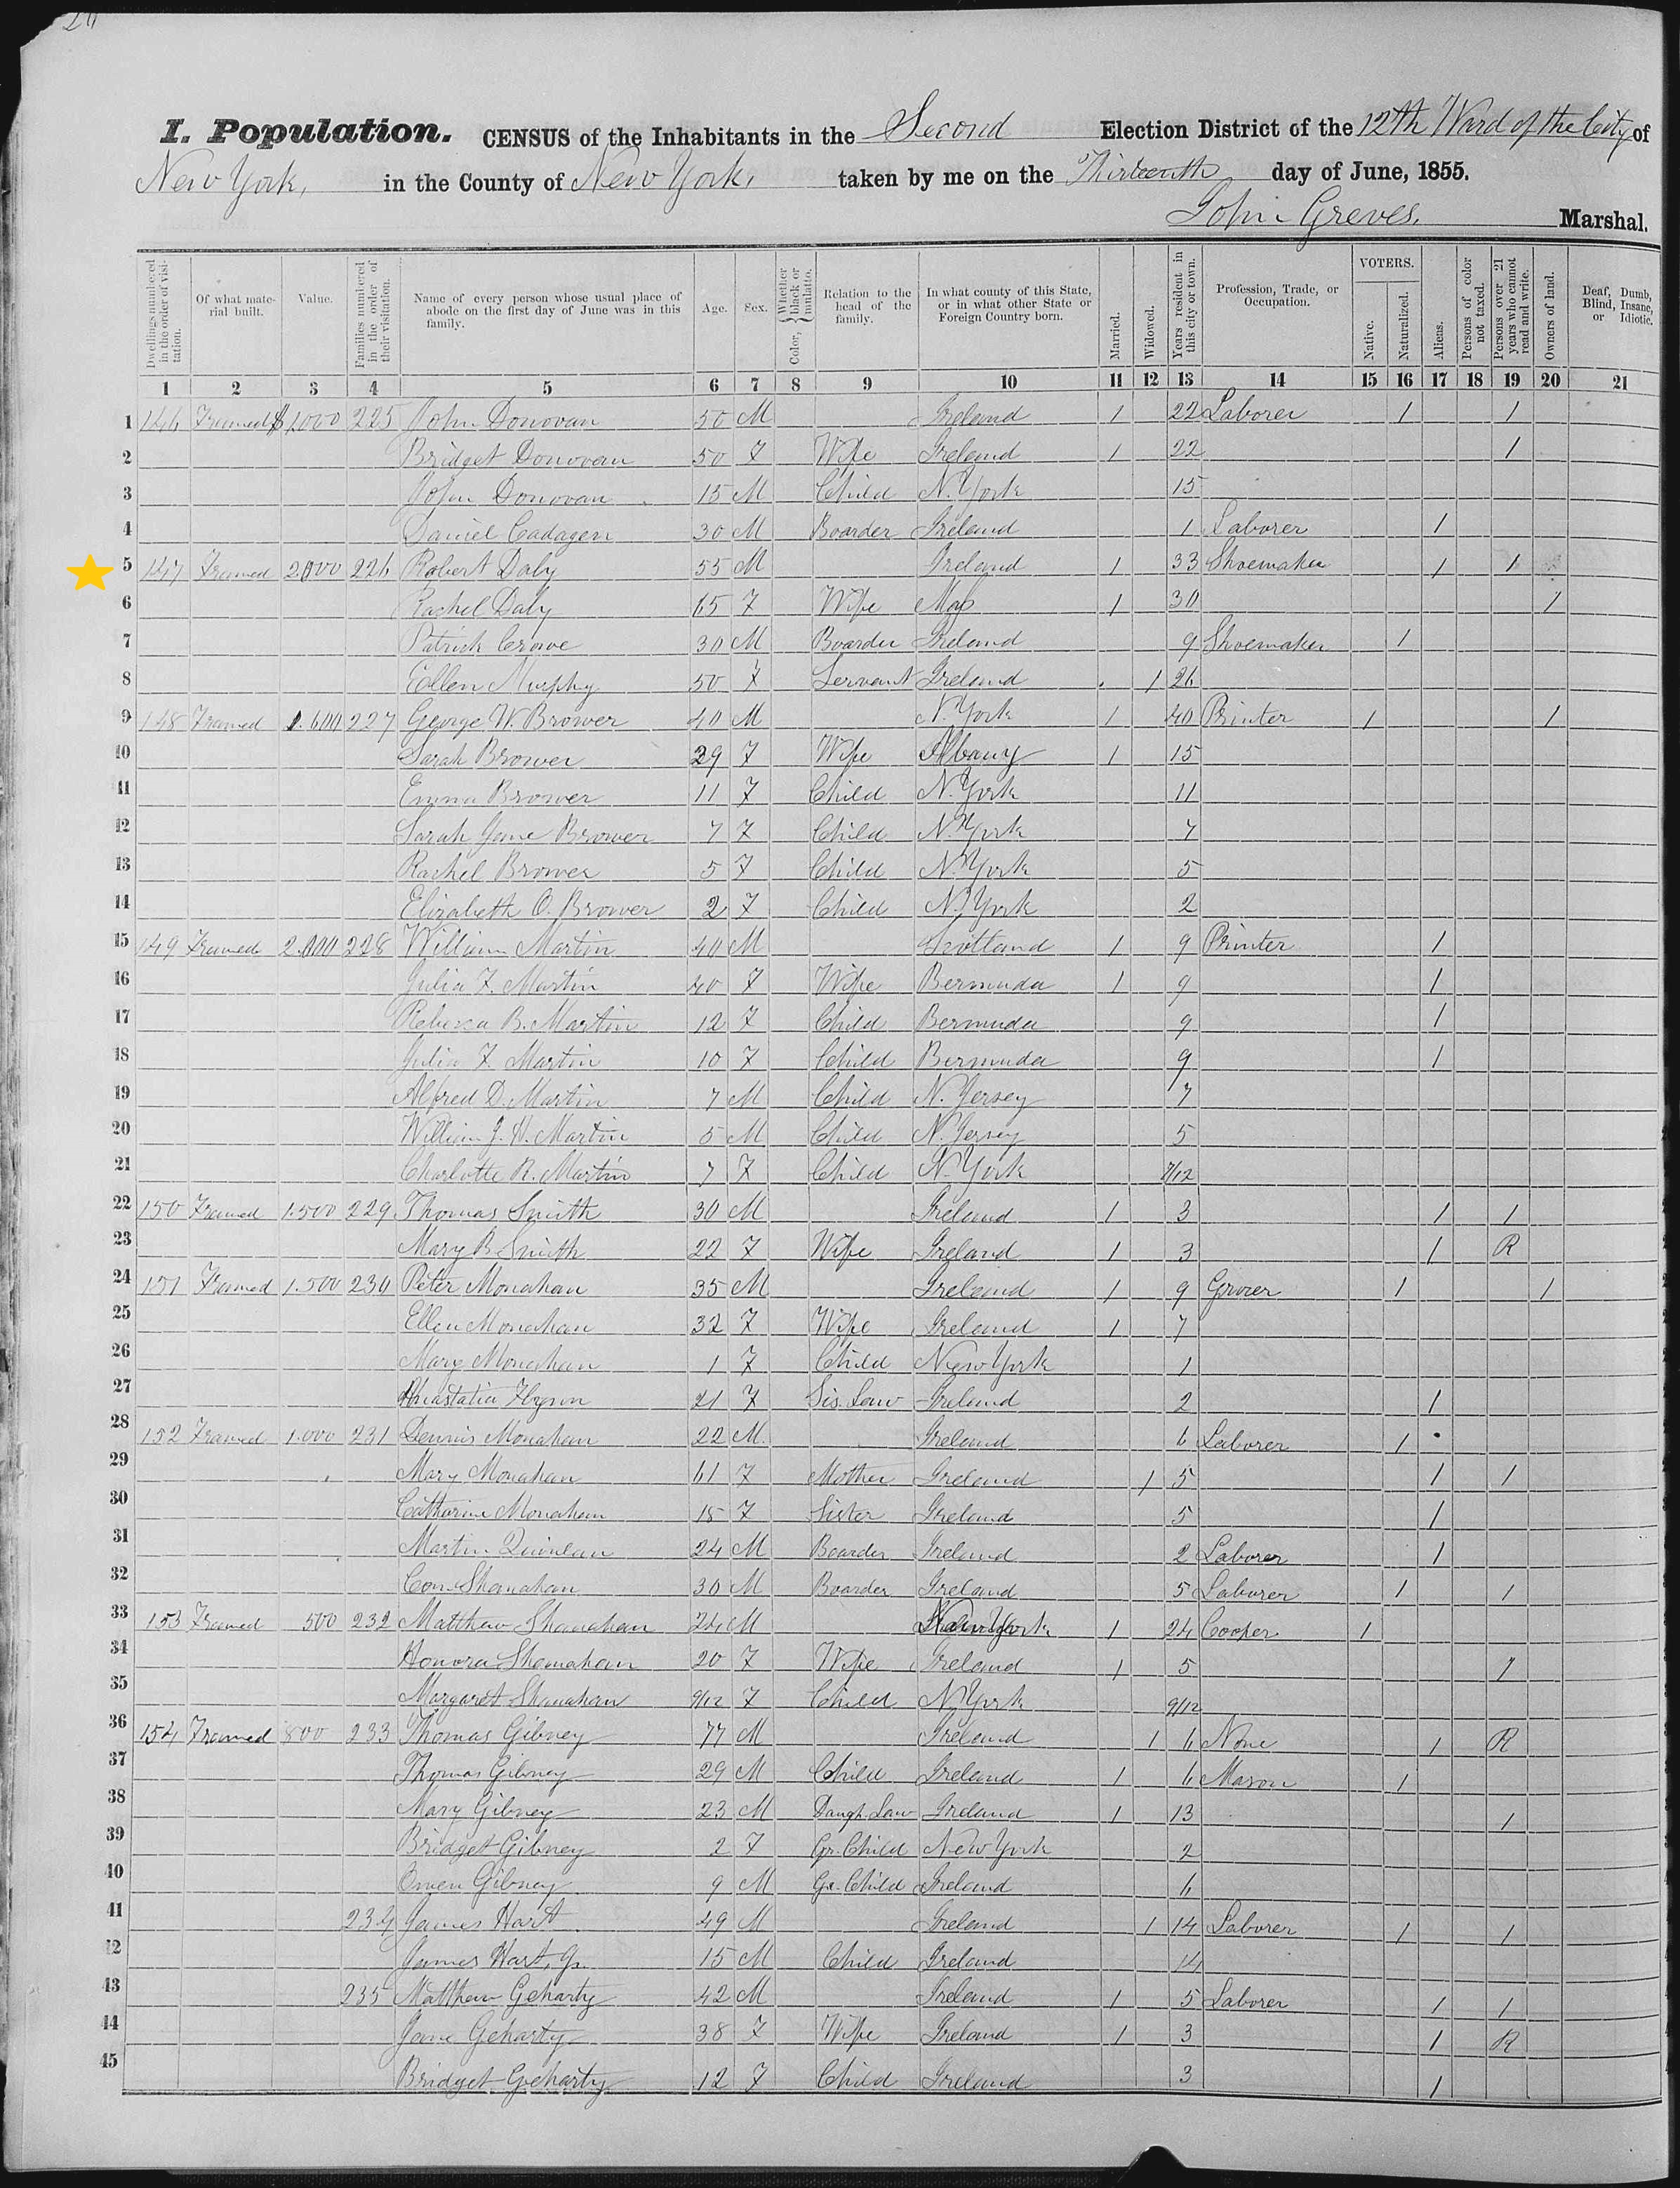 I. Population. CENSUS of the Inhabitants in the Second Election District of the 12th Ward of the City of
New York, in the County of New York, taken by me on the Thirteenth day of June, 1855.
John Greves, Marshal.
Dwellings numbered in the order of visitation.
Of what material built.
Value.
Families numbered in the order of their visitation.
Name of every person whose usual place of abode on the first day of June was in this family.
Age.
Sex.
Color, { Whether black or mulatto.
Relation to the head of the family.
In what county of this State, or in what other State or Foreign Country born.
Married.
Widowed.
Years resident in this city or town.
Profession, Trade, or Occupation.
VOTERS.
Native.
Naturalized.
Aliens.
Persons of color not taxed.
Persons over 21 years who cannot read and write.
Owners of land.
Deaf, Dumb, Blind, Insane, or Idiotic.
1 2 3 4 5 6 7 8 9 10 11 12 13 14 15 16 17 18 19 20 21
1 146 Framed $1,000 225 John Donovan 50 M Ireland 1 22 Laborer 1 1
2 Bridget Donovan 50 F Wife Ireland 1 22 1
3 John Donovan 15 M Child N. York 15
4 Daniel Cadagen 30 M Boarder Ireland 1 Laborer 1
5 147 Framed 2.000 226 Robert Daly 55 M Ireland 1 33 Shoemaker 1 1
6 Rachel Daly 65 F Wife 1 30 1
7 Patrick Crowe 30 M Boarder Ireland 9 Shoemaker 1
8 Ellen Murphy 50 F Servant Ireland 1 26
9 148 Framed 1.600 227 George W. Brower 40 M N. York 1 40 Printer 1 1
10 Sarah Brower 29 F Wife Albany 1 15
11 Emma Brower 11 F Child N. York 11
12 Sarah Jane Brower 7 F Child N. York 7
13 Rachel Brower 5 F Child N. York 5
14 Elizabeth O. Brower 2 F Child N. York 2
15 149 Framed 2.000 228 William Martin 40 M Scotland 1 9 Printer 1
16 Julia F. Martin 40 F Wife Bermuda 1 9 1
17 Rebecca B. Martin 12 F Child Bermuda 9 1
18 Julia F. Martin 10 F Child Bermuda 9 1
19 Alfred D. Martin 7 M Child N. Jersey 7
20 William J. H. Martin 5 M Child N. Jersey 5
21 Charlotte R. Martin 7 F Child N. York 7/12
22 150 Framed 1.500 229 Thomas Smith 30 M Ireland 1 3 1 1
23 Mary B Smith 22 F Wife Ireland 1 3 1 R
24 151 Framed 1.500 230 Peter Monahan 35 M Ireland 1 9 Grocer 1 1
25 Ellen Monahan 32 F Wife Ireland 1 7
26 Mary Monahan 1 F Child New York 1
27 Anastatia Flynn 21 F Sis. Law Ireland 2 1
28 152 Framed 1.000 231 Dennis Monahan 22 M. Ireland 6 Laborer 1
29 Mary Monahan 61 F Mother Ireland 1 5 1 1
30 Catharine Monahan 15 F Sister Ireland 5 1
31 Martin Quinlan 24 M Boarder Ireland 2 Laborer 1
32 Con. Shanahan 30 M Boarder Ireland 5 Laborer 1 1
33 153 Framed 500 232 Matthew Shanahan 24 M New York 1 24 Cooper 1
34 Honora Shanahan 20 F Wife Ireland 1 5 1
35 Margaret Shanahan 9/12 F Child N. York 9/12
36 154 Framed 800 233 Thomas Gibney 77 M Ireland 1 6 None 1 R
37 Thomas Gibney 29 M Child Ireland 1 6 Mason 1
38 Mary Gibney 23 M Daugh. Law Ireland 1 13 1
39 Bridget Gibney 2 F Gr. Child New York 2
40 Owen Gibney 9 M Gr. Child Ireland 6
41 234 James Hart 49 M Ireland 1 14 Laborer 1 1
42 James Hart, Jr. 15 M Child Ireland 14
43 235 Matthew Geharty 42 M Ireland 1 5 Laborer 1 1
44 Jane Geharty 38 F Wife Ireland 1 3 1 R
45 Bridget Geharty 12 F Child Ireland 3 1